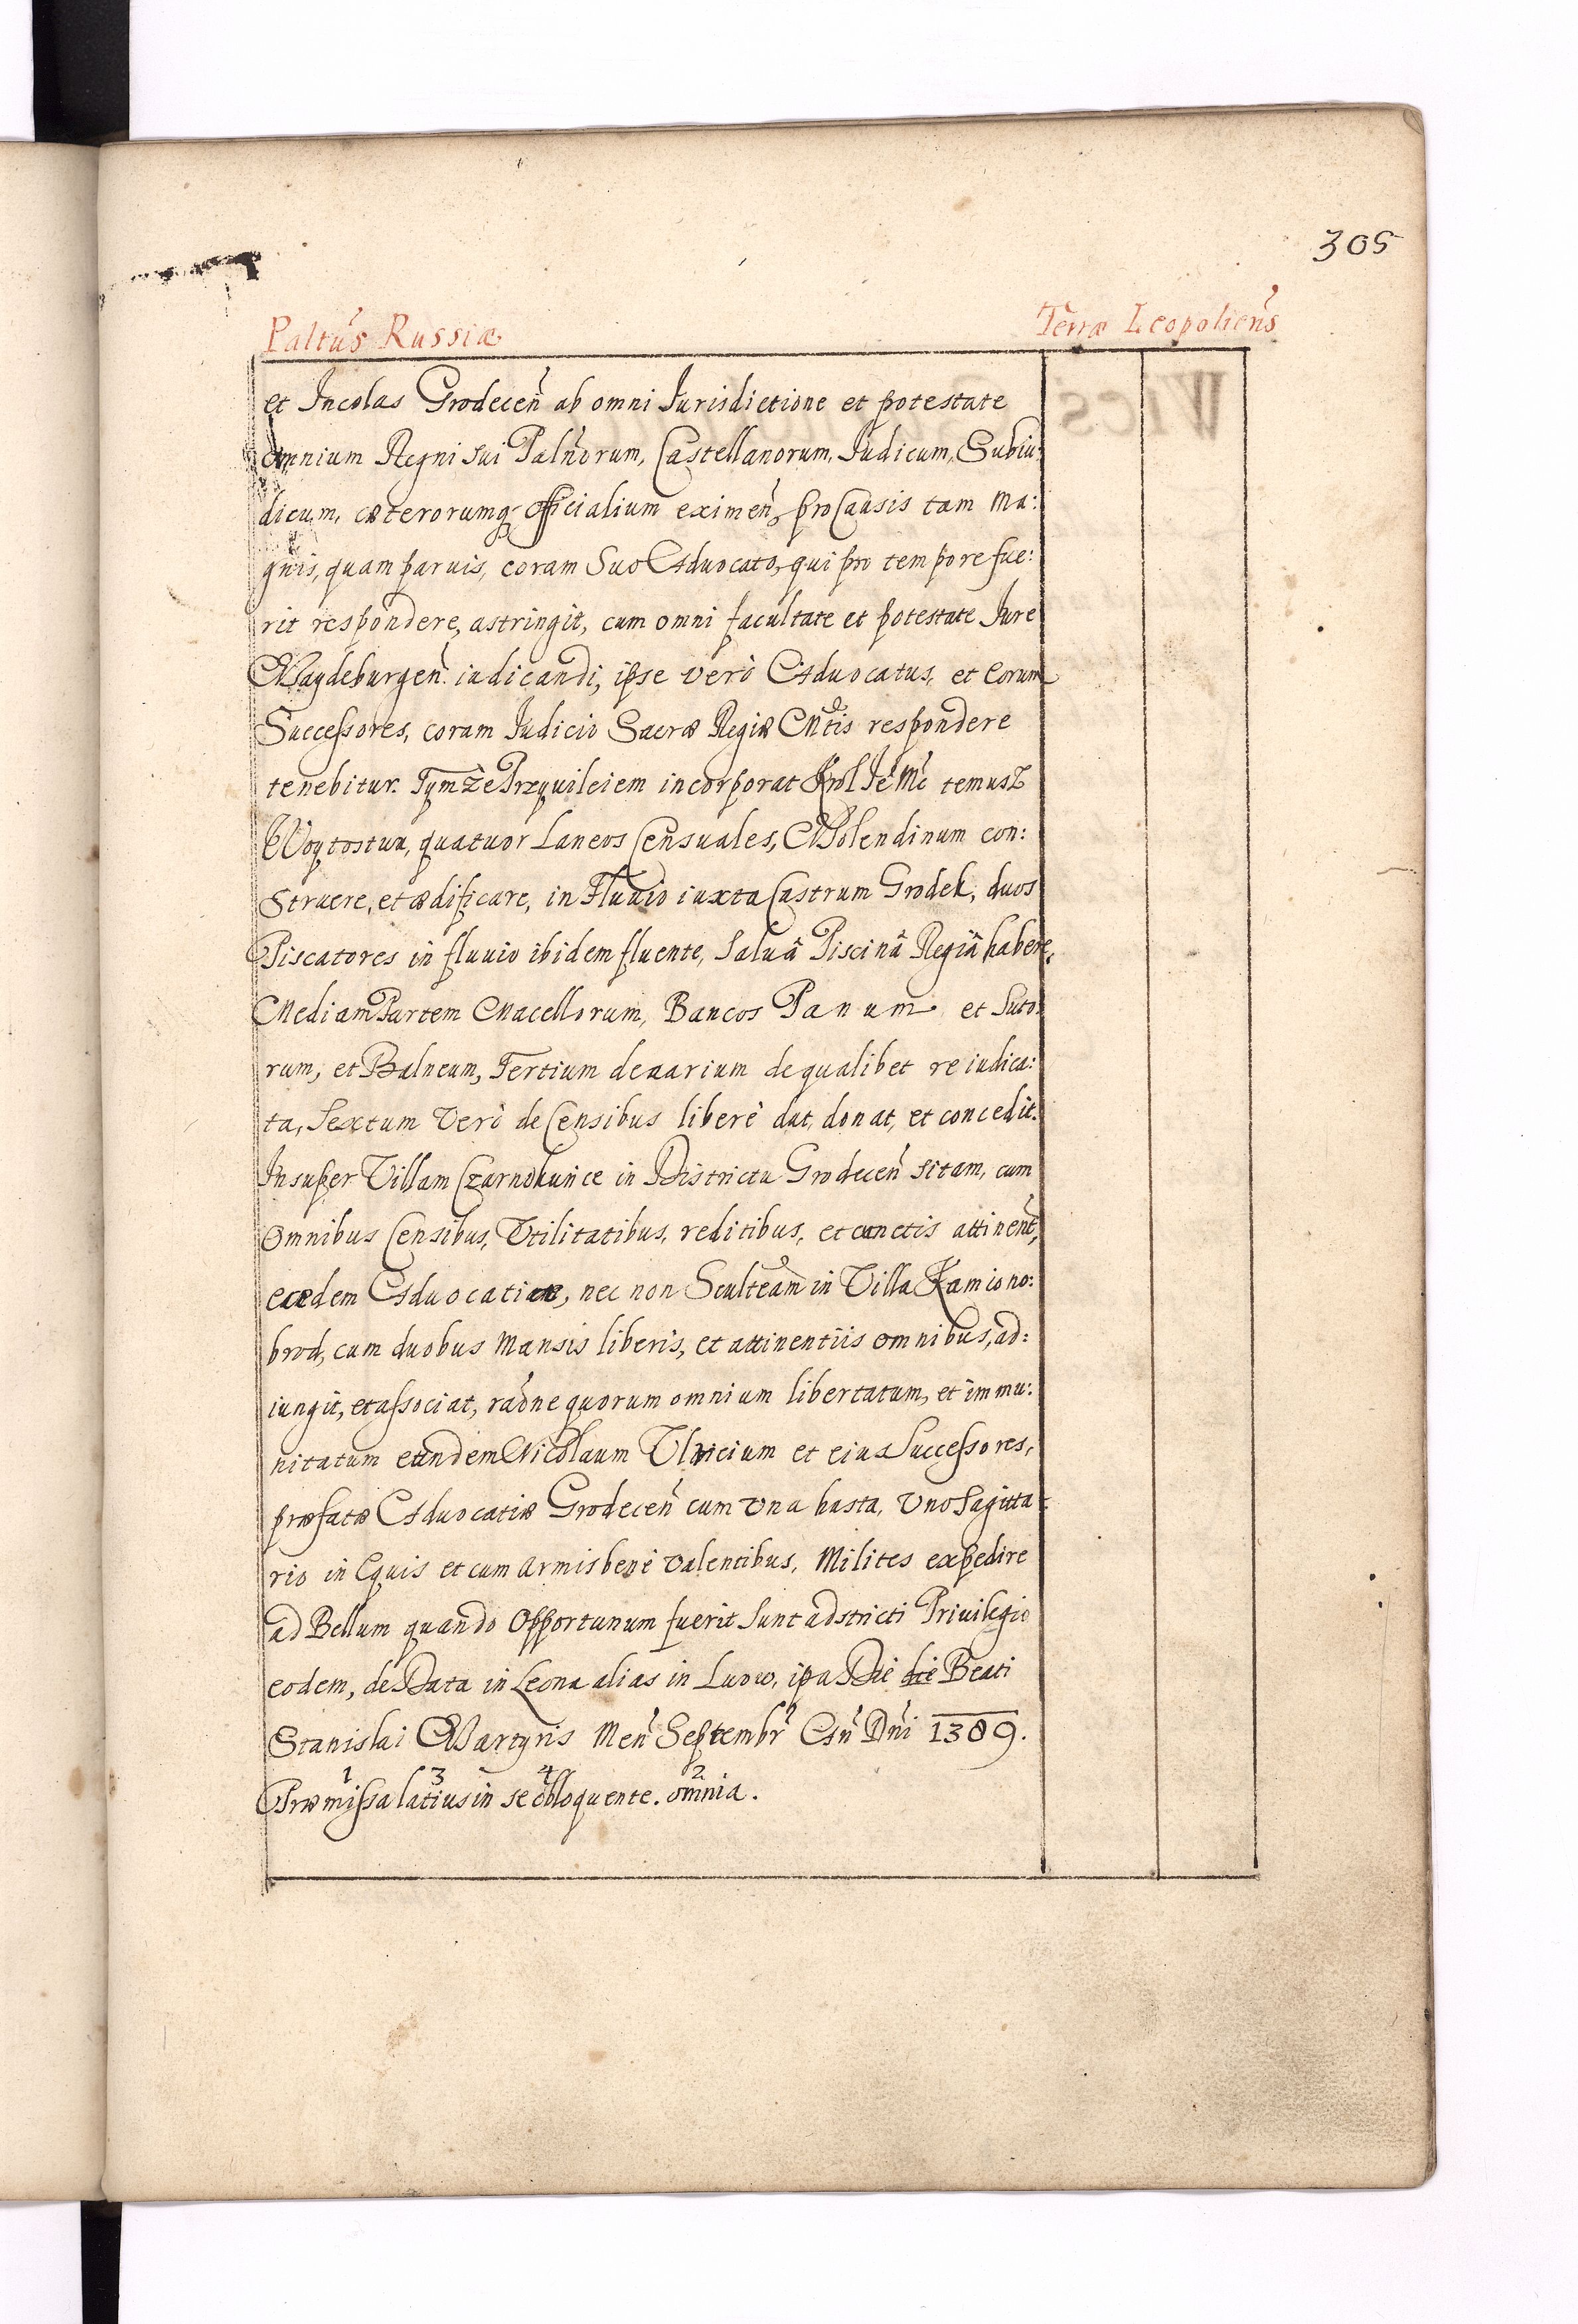 305
Paltũs Russiæ Terræ Leopoliens̃
et Incolas Grodeceñ ab omni Iurisdictione et potestate
omnium Regni sui Palñorum, Castellanorum, Iudicum, Subiu:
dicum, cæterorumq Officialium eximeñ, pro Causis tam Ma:
gnis, quam paruis, coram Suo Aduocato, qui pro tempore fue:
rit respondere, astringit, cum omni facultate et potestate Iure
Maydeburgeñ. iudicandi, ipse verò Aduocatus, et Eorum
Successores, coram Iudicio Sacræ Regiæ Mtis respondere
tenebitur. Tymże Przyuileiem incorporat Krol Ie Mc temusz
Woytostwu, quatuor Laneos Censuales, Molendinum con:
struere, et ædificare, in Fluuio iuxta Castrum Grodek, duos
Piscatores in fluuio ibidem fluente, Saluâ Piscinâ Regiâ habere,
Mediam Partem Macellorum, Bancos Panum et Suto:
rum, et Balneum, Tertium denarium de qualibet re iudica:
ta, Sextum Verò de Censibus liberè dat, donat, et concedit.
Insuper Villam Czarnokunce in Districtu Grodeceñ sitam, cum
Omnibus Censibus, Vtilitatibus, reditibus, et cunctis attineñt,
eædem Aduocatiæ, nec non Sculteam in Villa Kamiono:
brod, cum duobus Mansis liberis, et attinentiis omnibus, ad:
iungit, et associat, raõne quorum omnium libertatum, et immu:
nitatum eundem Nicolaum Vlricium et eius Successores,
præfatæ Aduocatiæ Grodeceñ cum Vna hasta, Vno Sagitta:
rio in Equis et cum armis benè valentibus, Milites expedire
ad Bellum quando Opportunum fuerit Sunt adstricti Priuilegio
eodem, de Data in Leona alias in Luow, ipa Die die Beati
Stanislai Martyris Meñ Septembr Añ Dñi 1389.
1 3 4 2
Præmissa latius in se obloquente. omnia.